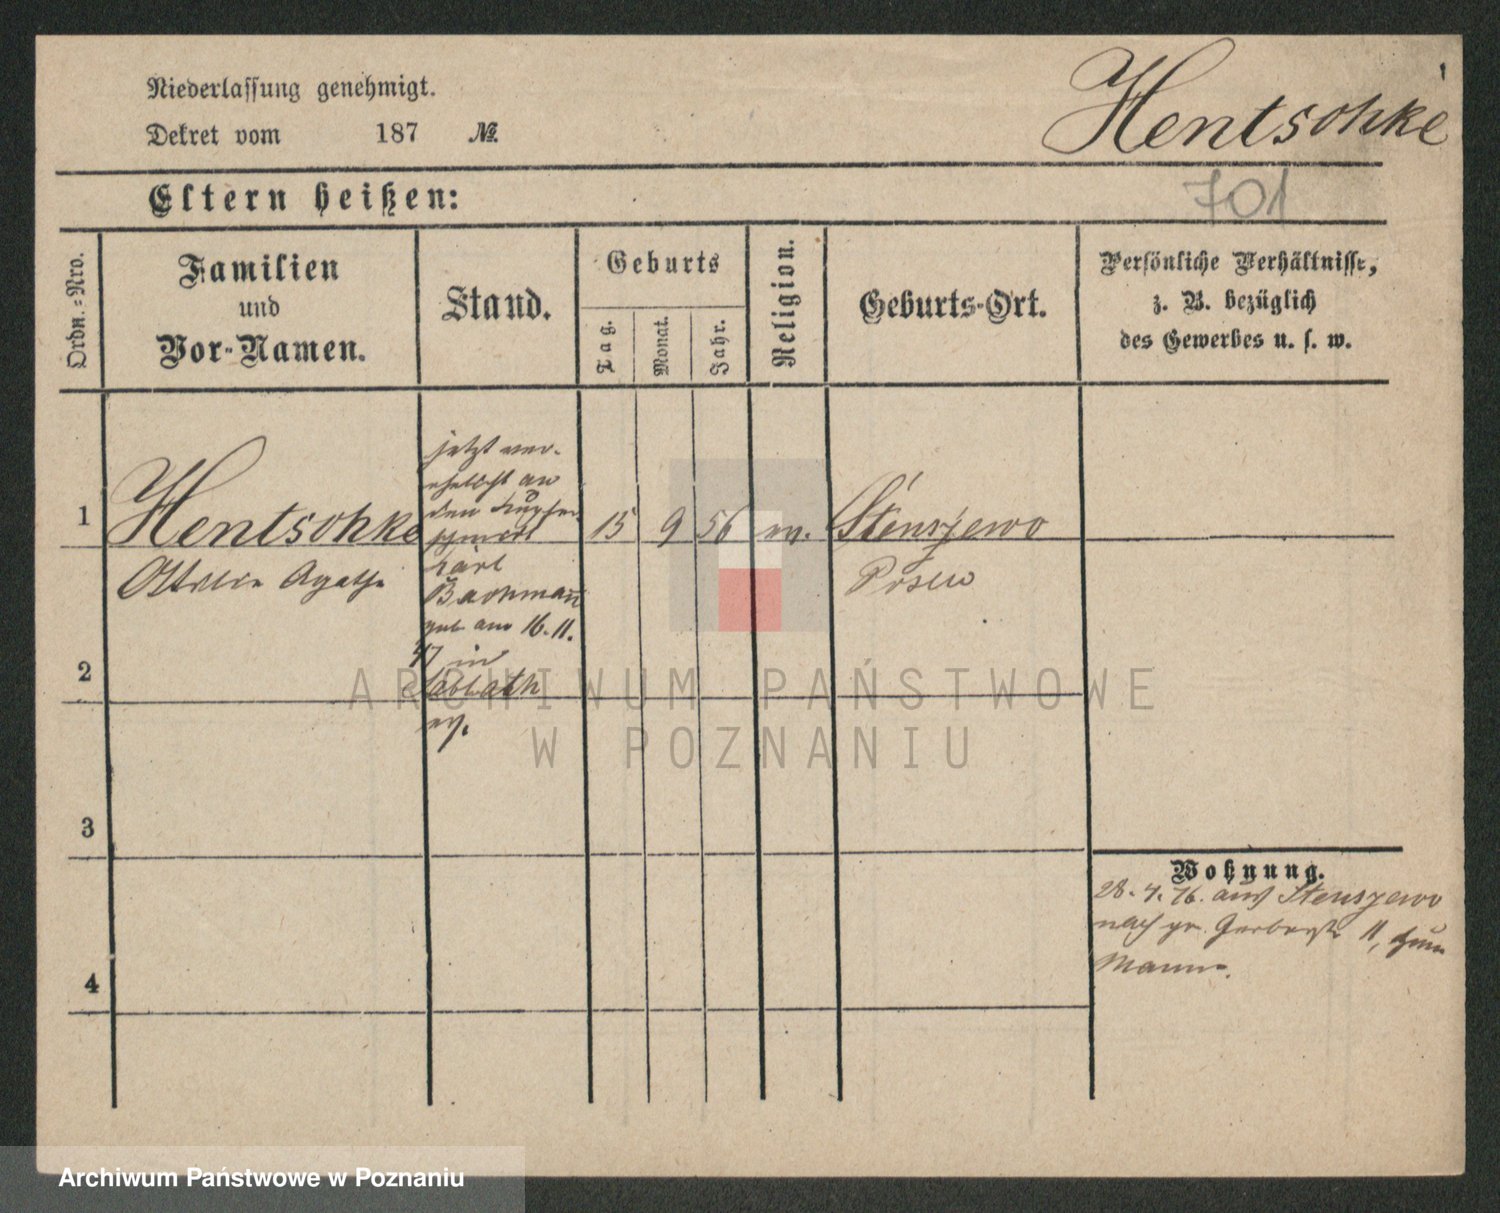 Niederlassung genehmigt.
Dekret vom 187 №.
Hentschke
701
Eltern heißen:
Ordn.=Nro.
Familien
und
Vor-Namen.
Stand.
Geburts
Tag.
Monat.
Jahr.
Religion.
Geburts-Ort.
Persönliche Verhältnisse,
z. B. bezüglich
des Gewerbes u. s. w.
1
Hentschke
Ottilie Agathe
jetzt ver-
ehelicht an
den Kupfer
schmidt
Karl
Bachmann
geb am 16. 11.
47 in
ev.
15 9 56 ev. Stenszewo
Posen
2
3
4
Wohnung.
28. 4. 76. aus Stenszewo
nach gr. Gerberstr 11, zum
Manne.
ARCHIWUM PAŃSTWOWE
W POZNANIU
Archiwum Państwowe w Poznaniu